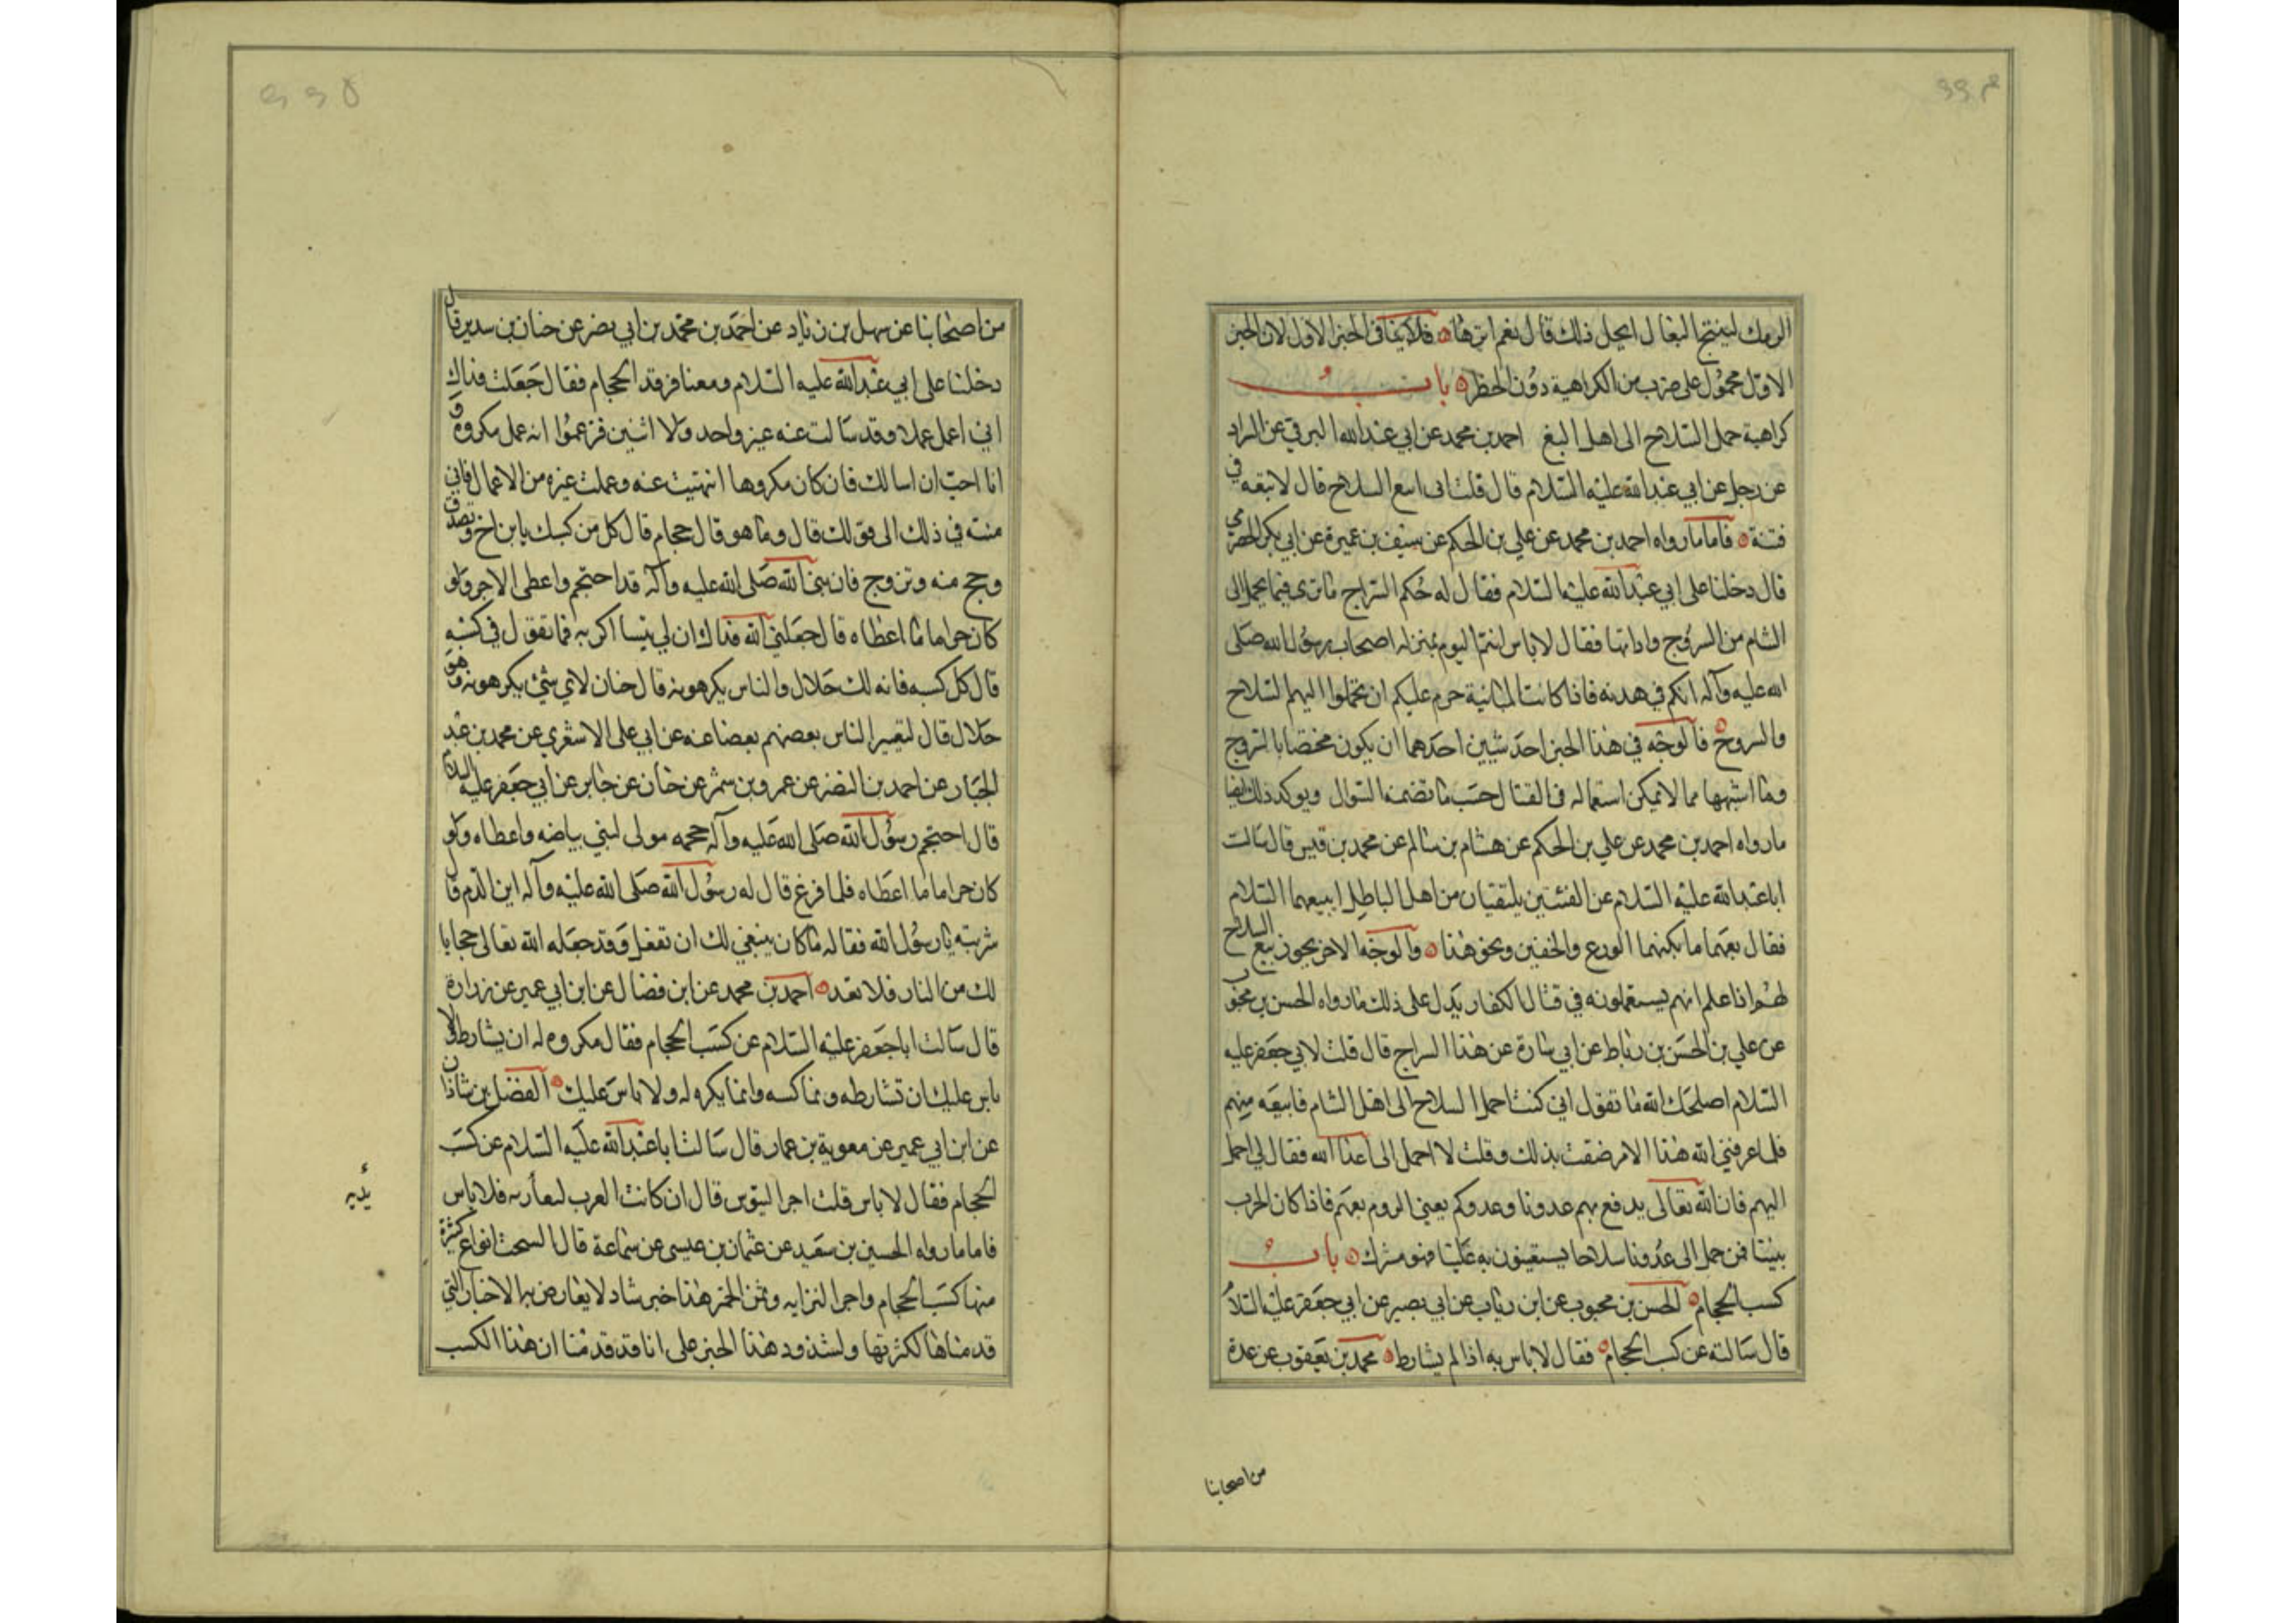 الرمك لينتجها البغال ايحل ذلك قال نعم انزها فلا ينافي الخبر الاول لان الخبر
الاول محمول على ضرب من الكراهية دون الحظر باب
كراهية حمل السلاح الى اهل البغي احمد بن محمد عن ابي عبد الله البرقي عن السراد
عن رجل عن ابي عبد الله عليه السلام قال قلت اني ابيع السلاح قال لا تبعه في
فتنة فاما ما رواه احمد بن محمد عن علي بن الحكم عن سيف بن عميرة عن ابي بكر الحضرمي
قال دخلنا على ابي عبد الله عليه السلام فقال له حكم السراج ما ترى فيما يحمل الى
الشام من السروج واداتها فقال لا باس انتم اليوم بمنزلة اصحاب رسول الله صلى
الله عليه وآله انكم في هدنة فاذا كانت المباينة حرم عليكم ان تحملوا اليهم السلاح
والسروج فالوجه في هذا الخبر احد شيئين احدهما ان يكون مختصا بالسروج
وما اشبهها مما لا يمكن استعماله في القتال حسب ما تضمنه السوال ويوكد ذلك ايضا
ما رواه احمد بن محمد عن علي بن الحكم عن هشام بن سالم عن محمد بن قيس قال سالت
ابا عبد الله عليه السلام عن الفئتين يلتقيان من اهل الباطل ابيعهما السلام
فقال بعهما ما يكنهما الدرع والخفين ونحو هذا والوجه الاخر يجوز بيع السلاح
لهم اذا علم انهم يستعملونه في قتال الكفار يدل على ذلك ما رواه الحسن بن محبوب
عن علي بن الحسن بن رباط عن ابي سارة عن هذا السراج قال قلت لابي جعفر عليه
السلام اصلحك الله ما تقول اني كنت احمل السلاح الى اهل الشام فابيعه منهم
فلما عرفني الله هذا الامر ضقت بذلك وقلت لا احمل الى اعداء الله فقال لي احمل
اليهم فان الله تعالى يدفع بهم عدونا وعدوكم يعني الروم بعهم فاذا كان الحرب
بيننا فمن حمل الى عدونا سلاحا يستعينون به علينا فهو مشرك باب
كسب الحجام الحسن بن محبوب عن ابن رئاب عن ابي بصير عن ابي جعفر عليه السلام
قال سالته عن كسب الحجام فقال لا باس به اذا لم يشارط محمد بن يعقوب عن عدة
من اصحابنا
من اصحابنا عن سهل بن زياد عن احمد بن محمد بن ابي نصر عن حنان بن سدير قال
دخلنا على ابي عبد الله عليه السلام ومعنا فرقد الحجام فقال جعلت فداك
اني اعمل عملا وقد سالت عنه غير واحد ولا اثنين فزعموا انه عمل مكروه و
انا احب ان اسالك فان كان مكروها انتهيت عنه وعملت غيره من الاعمال فاني
منته في ذلك الى قولك قال وما هو قال حجام قال كل من كسبك يا بن اخ وتصدق
وحج منه وتزوج فان نبي الله صلى الله عليه وآله قد احتجم واعطى الاجر ولو
كان حراما ما اعطاه قال جعلني الله فداك ان لي تيسا اكريه فما تقول في كسبه
قال كل كسبه فانه لك حلال والناس يكرهونه قال حنان لاي شيء يكرهونه وهو
حلال قال لتعيير الناس بعضهم بعضا عنه عن ابي علي الاشعري عن محمد بن عبد
الجبار عن احمد بن النضر عن عمرو بن شمر عن خان عن جابر عن ابي جعفر عليه السلام
قال احتجم رسول الله صلى الله عليه وآله حجمه مولى لبني بياضه واعطاه ولو
كان حراما ما اعطاه فلما فرغ قال له رسول الله صلى الله عليه وآله اين الدم قال
شربته يا رسول الله فقال له ما كان ينبغي لك ان تفعل وقد جعله الله تعالى حجابا
لك من النار فلا تعد احمد بن محمد عن ابن فضال عن ابن ابي عمير عن زرارة
قال سالت ابا جعفر عليه السلام عن كسب الحجام فقال مكروه له ان يشارط ولا
باس عليك ان تشارطه وتماكسه وانما يكره له ولا باس عليك الفضل بن شاذان
عن ابن ابي عمير عن معوية بن عمار قال سالت ابا عبد الله عليه السلام عن كسب
الحجام فقال لا باس قلت اجر التيوس قال ان كانت العرب لتعاير به فلا باس
فاما ما رواه الحسين بن سعيد عن عثمان بن عيسى عن سماعة قال السحت انواع كثيرة
منها كسب الحجام واجر الزانيه وثمن الخمر هذا خبر شاذ لا يعارض به الاخبار التي
قدمناها لكثرتها ولشذوذ هذا الخبر على انا قد قدمنا ان هذا الكسب